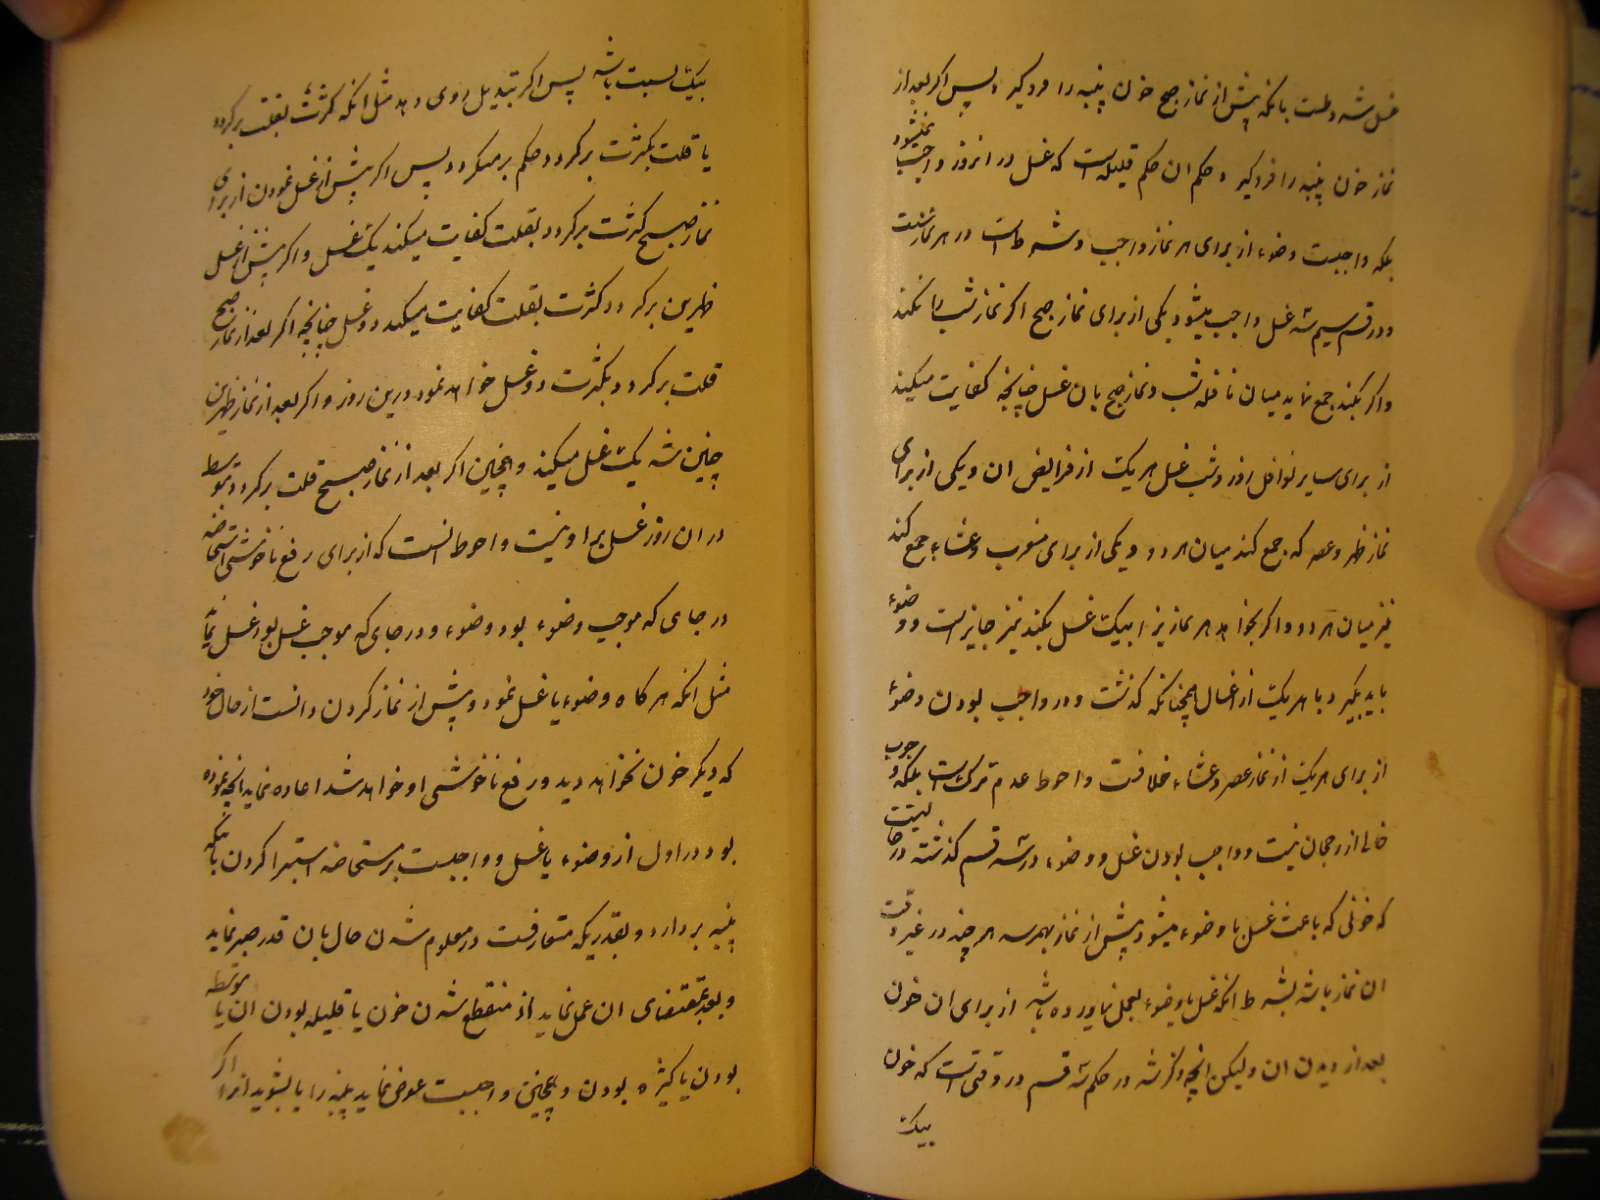 غسل شد و طست بانکه پیش از نماز صبح خون پنبه را فروگیرد و پس اگر بعد از
نماز خون پنبه را فروگیرد حکم ان حکم قلیله است که غسل در انروز واجب نمیشود
بلکه واجبست وضوء از برای هر نماز واجب و شرط است در هر نماز سنت
و در قسم سیم سه غسل واجب میشود یکی از برای نماز صبح اگر نماز شب را نکند
و اگر بکند جمع نماید میان نافله شب و نماز صبح بان غسل چنانچه کفایت میکند
از برای سایر نوافل روز و شب غسل هر یک از فرایض ان و یکی از برای
نماز ظهر و عصر که جمع کند میان هر دو و یکی از برای مغرب و عشاء جمع کند
نیز میان هر دو و اگر بخواهد هر نماز را بیک غسل بکند نیز جایز است و وضوء
باید بگیرد با هر یک از اغسال همچنانکه گذشت و در واجب بودن وضوء
از برای هر یک از نماز عصر و عشاء خلافست و احوط عدم ترک است بلکه وجوب
خالی از رجحان نیست و واجب بودن غسل و وضوء در سه قسم گذشته در حالیتست
که خونی که باعث غسل یا وضوء میشود پیش از نماز بهمرسد هر چند در غیر وقت
ان نماز باشد بشرط انکه غسل یا وضوء بعمل نیاورده باشد از برای ان خون
بعد از دیدن ان ولیکن انچه ذکر شد در حکم سه قسم در وقتی است که خون
بیک
بیک نسبت باشد پس اگر تبدیل روی دهد مثل انکه کثرت بقلت برگردد
یا قلت بکثرت برگردد حکم برمیگردد پس اگر پیش از غسل نمودن از برای
نماز صبح کثرت برگردد بقلت کفایت میکند یک غسل و اگر پیش از غسل
ظهرین برگردد کثرت بقلت کفایت میکند دو غسل چنانچه اگر بعد از نماز صبح
قلت برگردد بکثرت دو غسل خواهد نمود درین روز و اگر بعد از نماز ظهرین
چنین شد یک غسل میکند و همچنین اگر بعد از نماز صبح قلت برگردد بتوسط
در ان روز غسل بر او نیست و احوط انست که از برای رفع ناخوشی استحاضه
در جای که موجب وضوء بود وضوء و در جای که موجب غسل بود غسل نماید
مثل انکه هر کاه وضوء یا غسل نمود و پیش از نماز کردن دانست از حال خود
که دیگر خون نخواهد دید و رفع ناخوشی او خواهد شد اعاده نماید انچه نموده
بود در اول از وضوء یا غسل و واجبست بر مستحاضه استبرا کردن بانکه
پنبه بردارد و بقدریکه متعارفست در معلوم شدن حال بان قدر صبر نماید
و بعد بمقتضای ان عمل نماید از منقطع شدن خون یا قلیله بودن ان یا متوسطه
بودن یا کثیره بودن و همچنین واجبست عوض نماید پنبه را یا بشوید انرا اگر